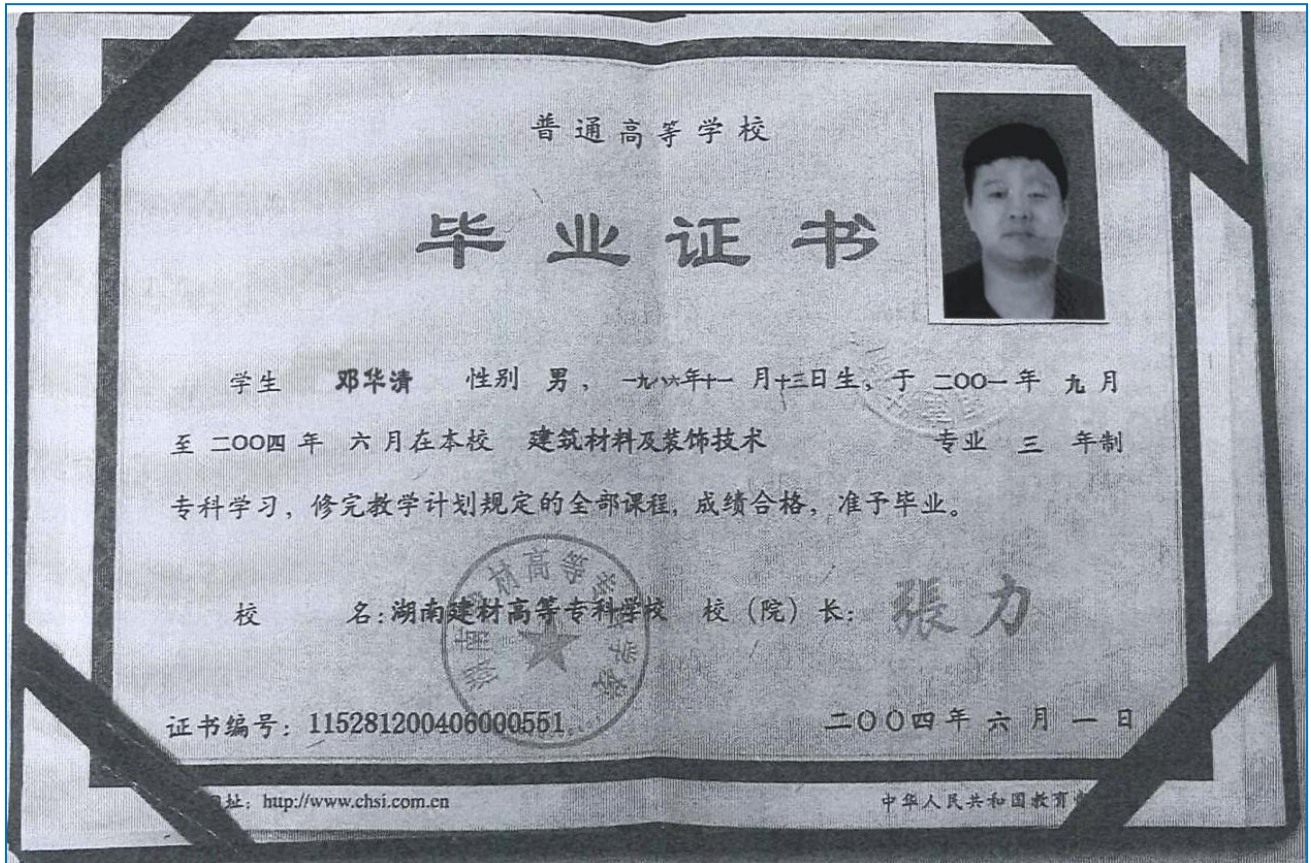 普通高等学校
毕业证书
学生 邓华清 性别 男， 一九八六年十一 月十三日生，于 二〇〇一 年 九 月
至 二〇〇四 年 六 月在本校 建筑材料及装饰技术 专业 三 年制
专科学习，修完教学计划规定的全部课程，成绩合格，准予毕业。
校 名：湖南建材高等专科学校 校（院）长： 張力
湖南建材高等专科学校
证书编号：115281200406000551 二〇〇四年 六 月 一 日
址：http://www.chsi.com.cn 中华人民共和国教育